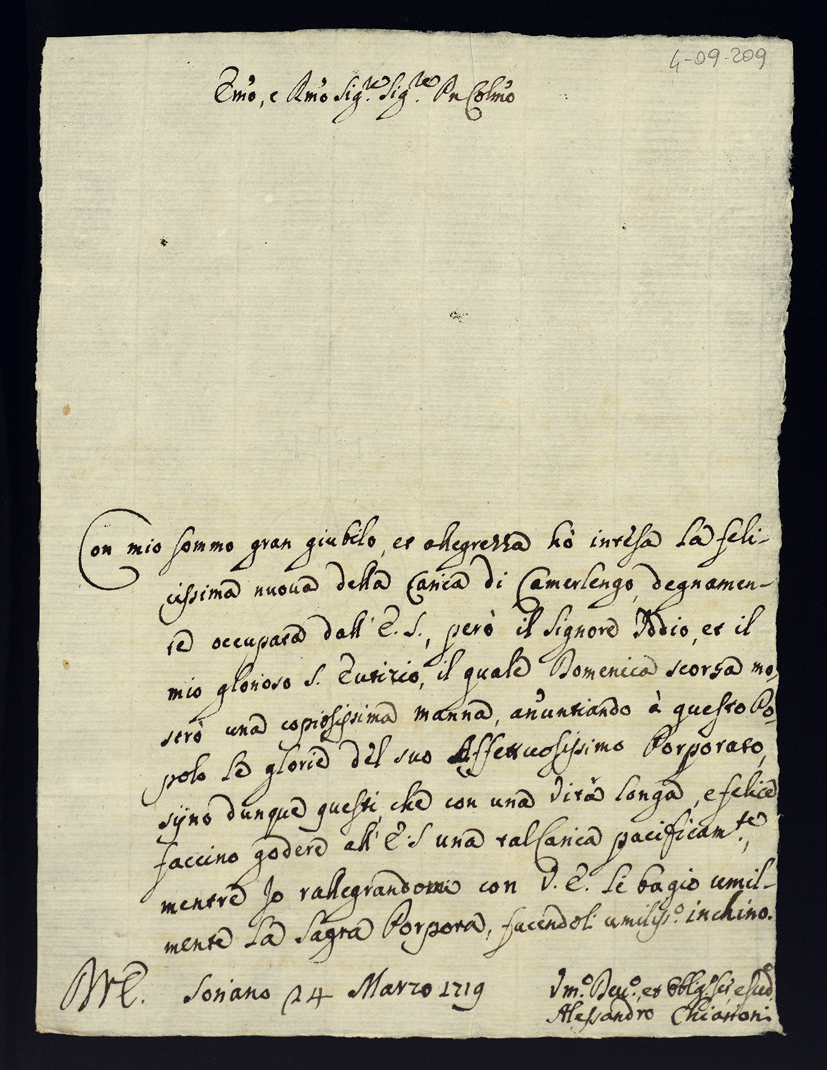 4-09-209
Emo, e Rmo Sig.re Sig.re Pn Colmo
Con mio sommo gran giubilo, et allegrezza hò intesa la feli-
cissima nuova della Carica di Camerlengo, degnamen-
te occupata dall' E. S., però il Signore Iddio, et il
mio glorioso S. Eutizio, il quale Domenica scorsa mo-
strò una copiosissima manna, anuntiando à questo Po-
polo le glorie del suo Affettuosissimo Porporato,
sijno dunque questi, che con una Vita longa, e felice
faccino godere all' E. S una tal Carica pacificam.te,
mentre Io rallegrandomi con V. E. li bagio umil-
mente la Sagra Porpora, facendoli umiliss.o inchino.
Soriano 24 Marzo 1719
Vm.o Dev.o, et Obblig.
Alessandro